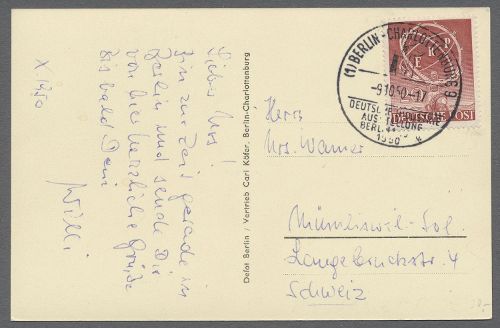 X.1950
Lieber Urs!
Bin zur Zeit gerade in
Berlin und sende Dir
von hier herzliche Grüße
Bis bald Dein
Willi
Defot Berlin / Vertrieb Carl Köfer, Berlin-Charlottenburg
(1) BERLIN-CHARLOTTENBURG 9
-9.10.50.-17
DEUTSCHE
AUSSTELLUNG
BERLIN
1950
ERP
DEUTSCHE POST
Herrn
Urs. Wanner
Mümliswil-Sol.
Langebruckstr. 4
Schweiz